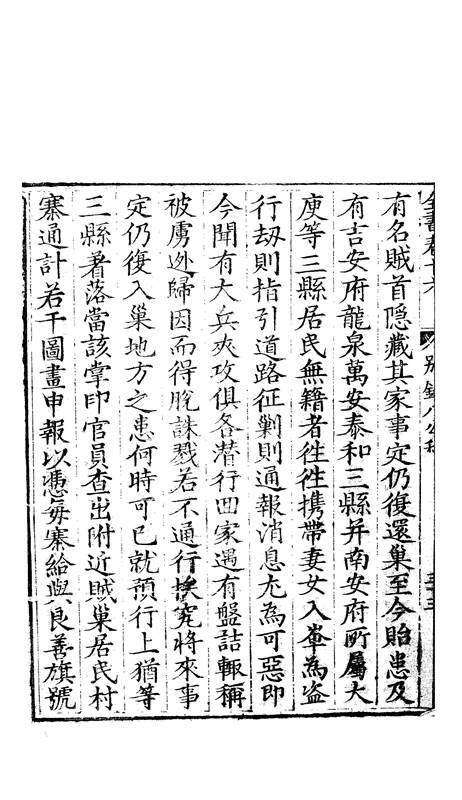 全書卷十六　別錄八公移　三十三
有名賊首隱藏其家事定仍復還巢至今貽患及
有吉安府龍泉萬安泰和三縣并南安府所屬大
庾等三縣居民無籍者徃徃携帶妻女入輋為盗
行刼則指引道路征剿則通報消息尤為可惡即
今聞有大兵夾攻俱各潜行囬家遇有盤詰輙稱
被虜逃歸因而得脫誅戮若不通行挨究將來事
定仍復入巢地方之患何時可已就預行上猶等
三縣着落當該掌印官員查出附近賊巢居民村
寨通計若干圖畫申報以憑每寨給與良善旗號